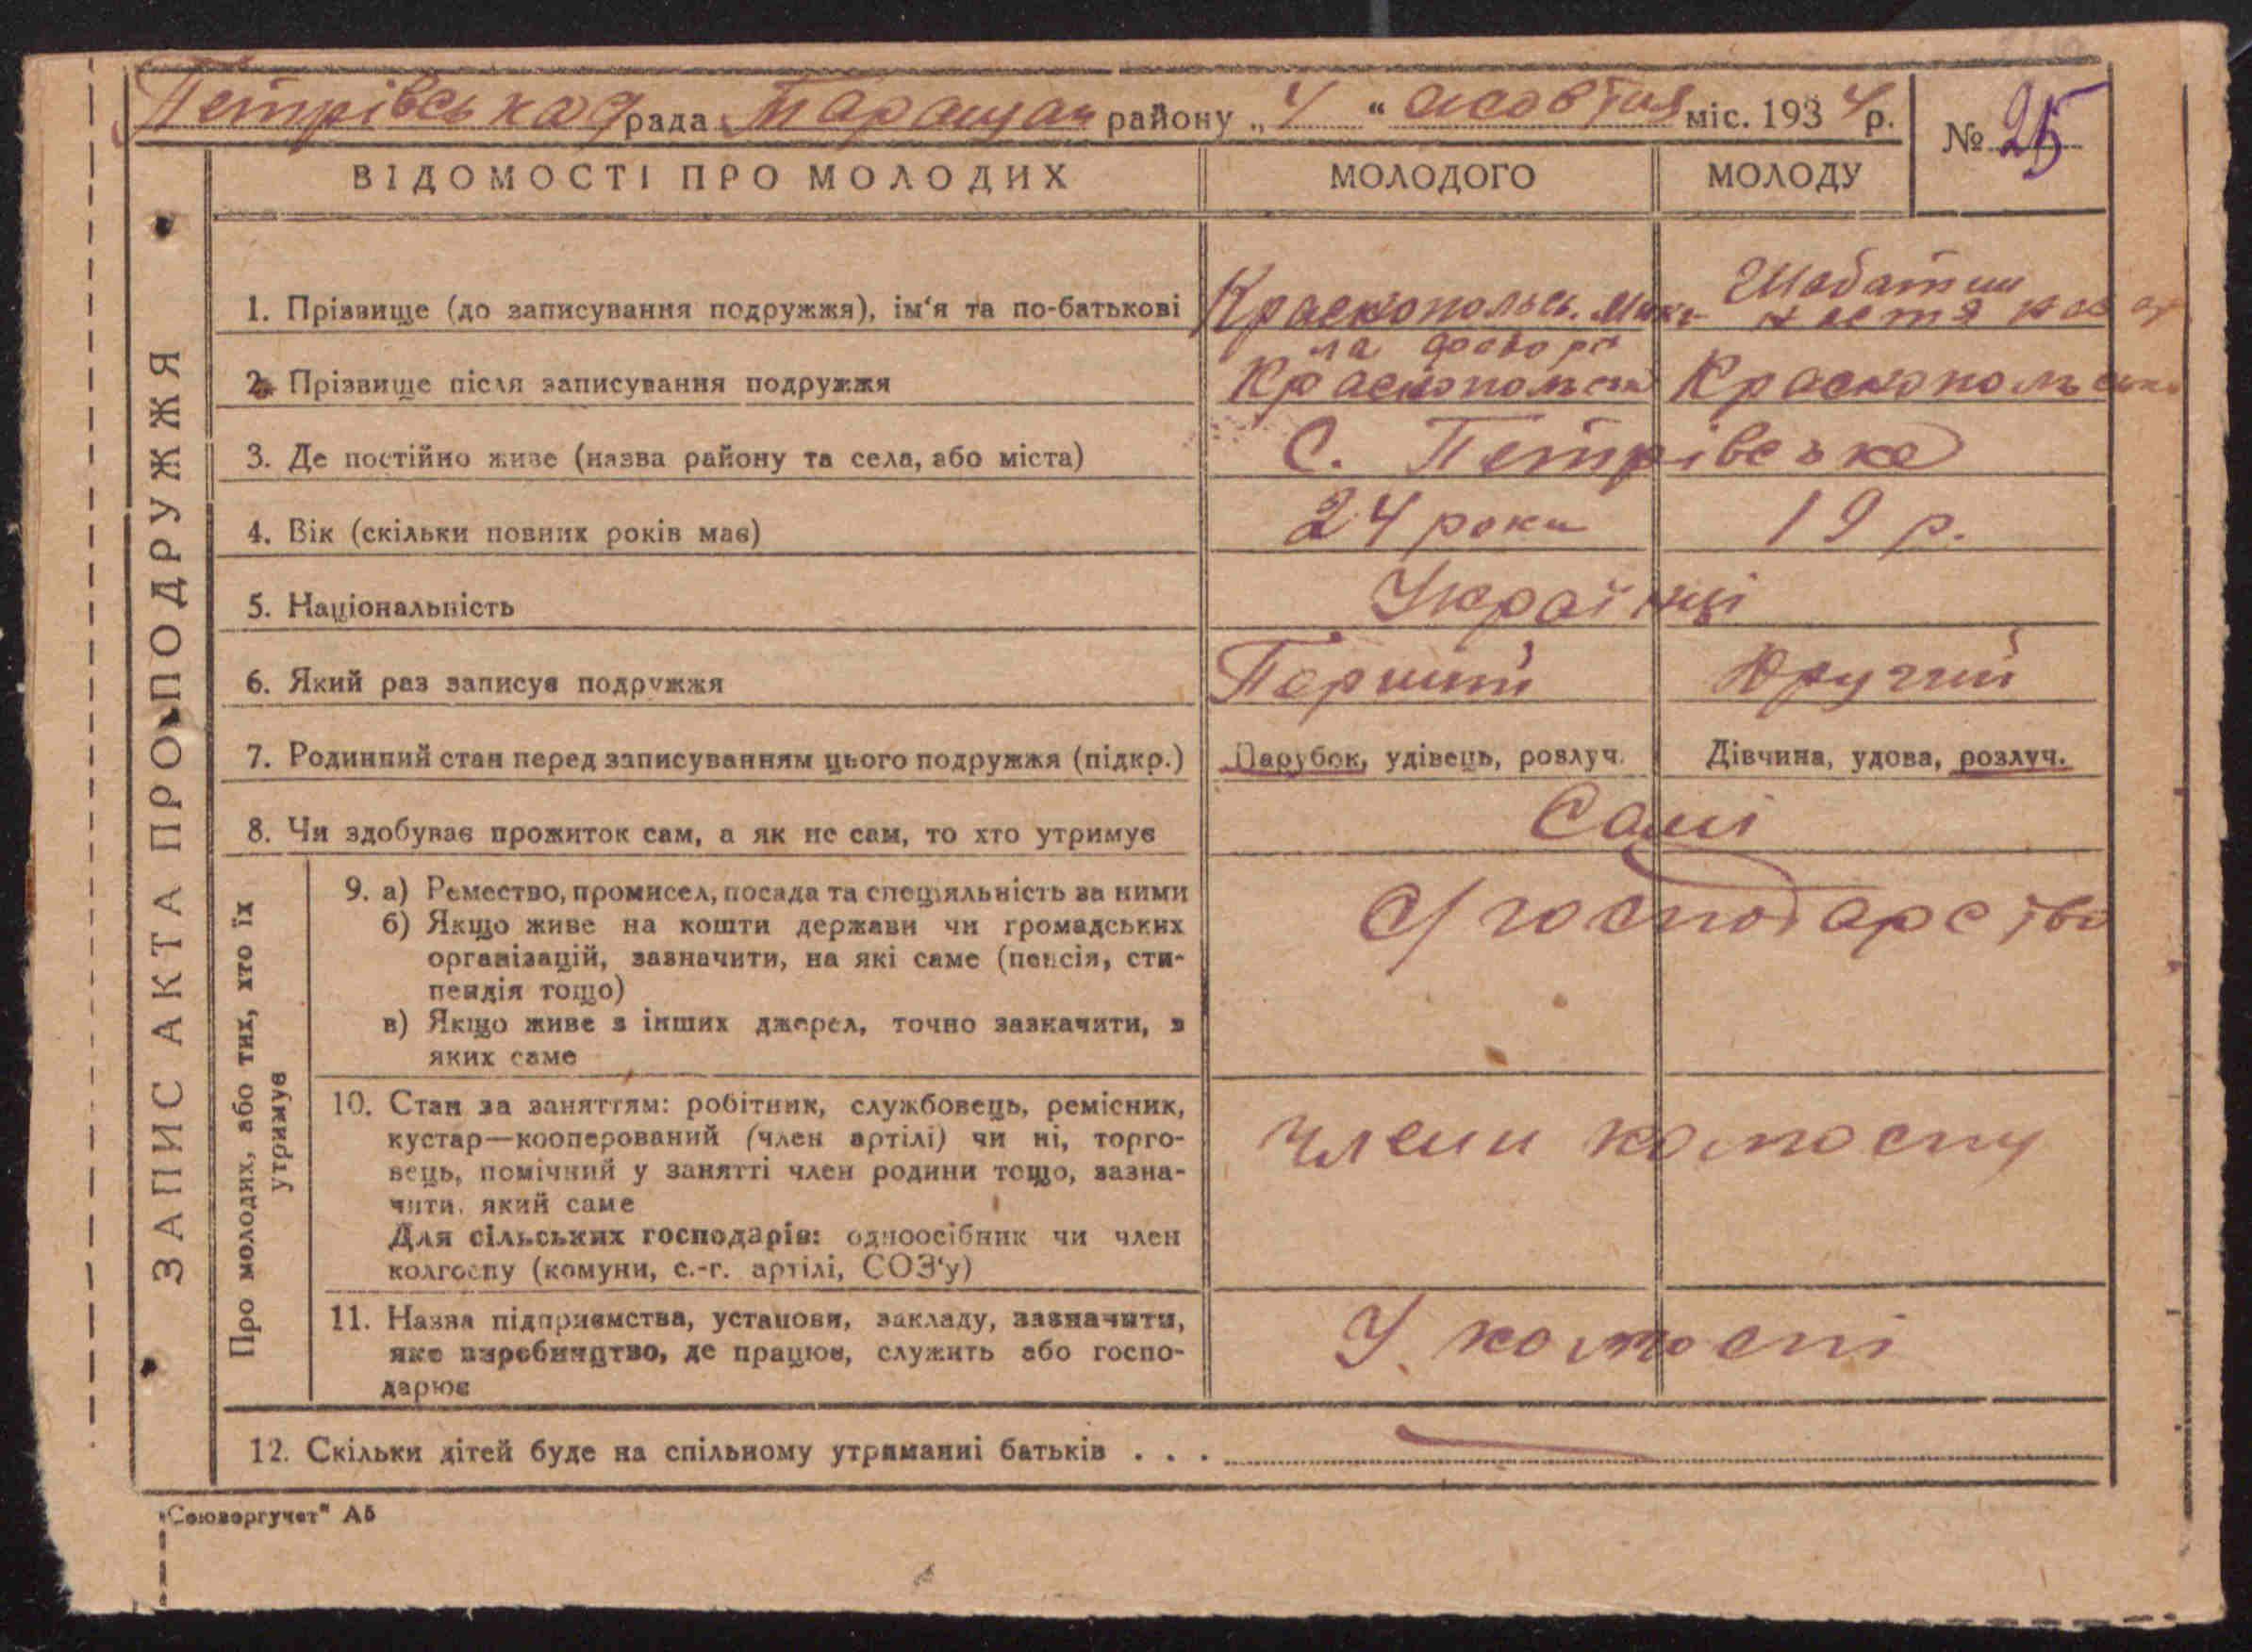 Петрівська рада Таращан району „4" жовтня міс. 1934 р.
№ 25
ВІДОМОСТІ ПРО МОЛОДИХ МОЛОДОГО МОЛОДУ
ЗАПИС АКТА ПРО ПОДРУЖЖЯ
1. Прізвище (до записування подружжя), ім'я та по-батькові Краснопольськ. Мики- Шабатин
ла
2. Прізвище після записування подружжя Краснопольськ Краснопольська
3. Де постійно живе (назва району та села, або міста) С. Петрівська
4. Вік (скільки повних років має) 24 роки 19 р.
5. Національність Українці
6. Який раз записує подружжя Перший Другий
7. Родинний стан перед записуванням цього подружжя (підкр.) Парубок, удівець, розлуч. Дівчина, удова, розлуч.
8. Чи здобуває прожиток сам, а як не сам, то хто утримує Самі
Про молодих, або тих, хто їх
утримує
9. а) Ремество, промисел, посада та спеціяльність за ними С/господарство
б) Якщо живе на кошти держави чи громадських
організацій, зазначити, на які саме (пенсія, сти-
пендія тощо)
в) Якщо живе з інших джерел, точно зазначити, з
яких саме
10. Стан за заняттям: робітник, службовець, ремісник,
кустар—кооперований (член артілі) чи ні, торго- члени колгоспу
вець, помічний у занятті член родини тощо, зазна-
чити, який саме
Для сільських господарів: одноосібник чи член
колгоспу (комуни, с.-г. артілі, СОЗ'у)
11. Назва підприємства, установи, закладу, зазначити,
яке виробництво, де працює, служить або госпо- У колгоспі
дарює
12. Скільки дітей буде на спільному утриманні батьків . . .
"Союзоргучет" А5